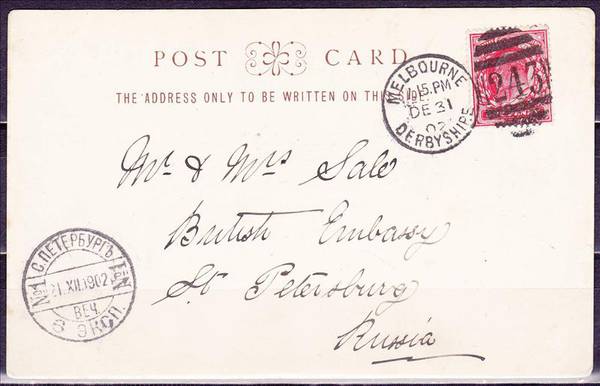 POST CARD
THE ADDRESS ONLY TO BE WRITTEN ON THIS
MELBOURNE
1.15.PM
DE 31
02
DERBYSHIRE
243
Mr & Mrs Sale
British Embassy
St Petersburg
Russia
С.ПЕТЕРБУРГЪ
№1 21.XII.1902 №1
ВЕЧ.
8 ЭКСП.